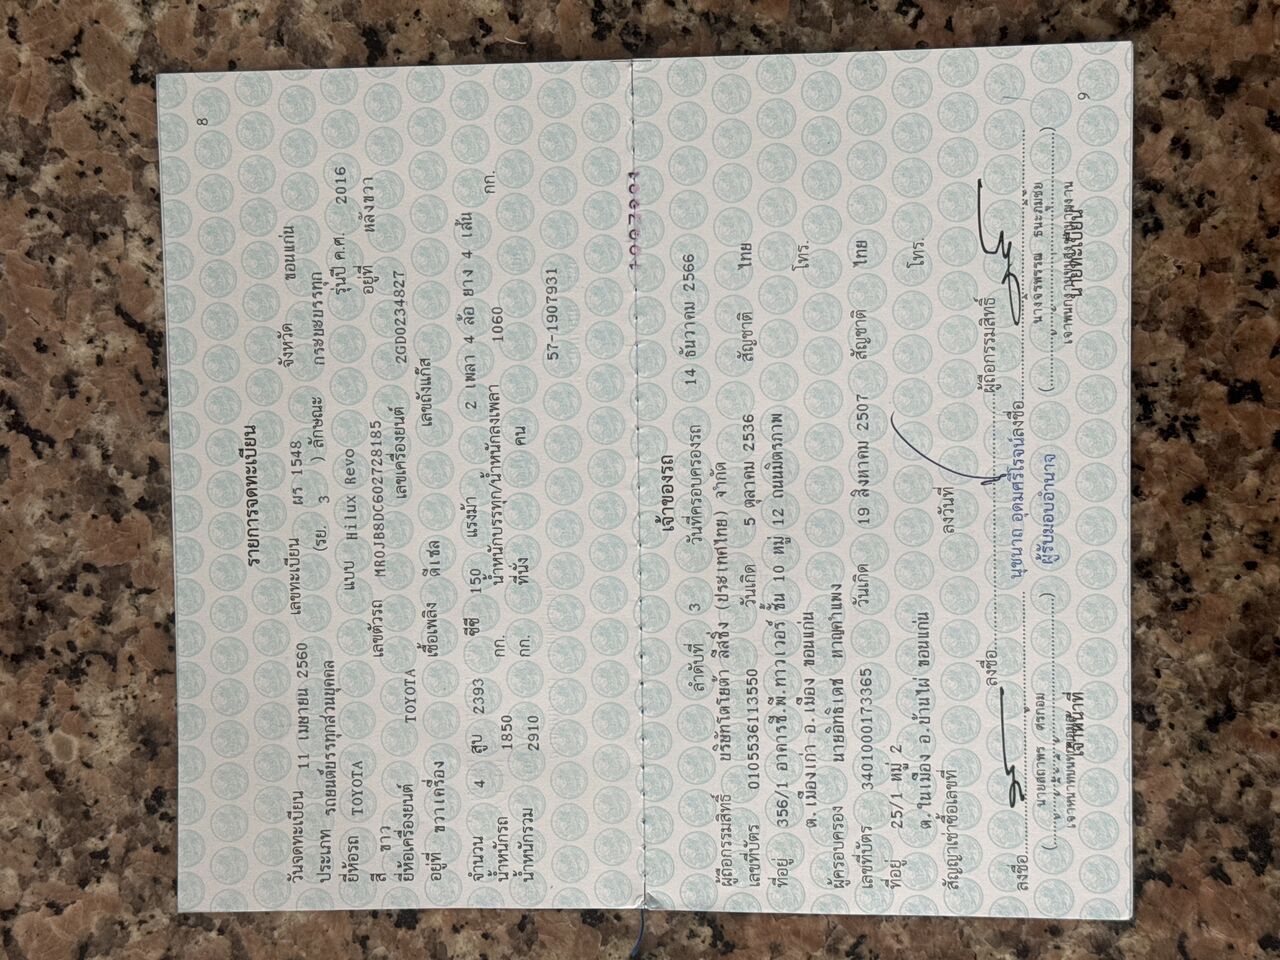 8
รายการจดทะเบียน
วันจดทะเบียน 11 เมษายน 2560 เลขทะเบียน ผร 1548 จังหวัด ขอนแก่น
ประเภท รถยนต์บรรทุกส่วนบุคคล (รย. 3 ) ลักษณะ กระบะบรรทุก
ยี่ห้อรถ TOYOTA แบบ Hilux Revo รุ่นปี ค.ศ. 2016
สี ขาว เลขตัวรถ MR0JB8DC602728185 อยู่ที่ หลังขวา
ยี่ห้อเครื่องยนต์ TOYOTA เลขเครื่องยนต์ 2GD0234827
อยู่ที่ ขวาเครื่อง เชื้อเพลิง ดีเซล เลขถังแก๊ส
จำนวน 4 สูบ 2393 ซีซี 150 แรงม้า 2 เพลา 4 ล้อ ยาง 4 เส้น
น้ำหนักรถ 1850 กก. น้ำหนักบรรทุก/น้ำหนักลงเพลา 1060 กก.
น้ำหนักรวม 2910 กก. ที่นั่ง คน
57-1907931
เจ้าของรถ
ลำดับที่ 3 วันที่ครอบครองรถ 14 ธันวาคม 2566
ผู้ถือกรรมสิทธิ์ บริษัทโตโยต้า ลีสซิ่ง (ประเทศไทย) จำกัด
เลขที่บัตร 0105536113550 วันเกิด 5 ตุลาคม 2536 สัญชาติ ไทย
ที่อยู่ 356/1 อาคารซี.พี.ทาวเวอร์ ชั้น 10 หมู่ 12 ถนนมิตรภาพ
ต.เมืองเก่า อ.เมือง ขอนแก่น โทร.
ผู้ครอบครอง นายอิทธิเดช หาญคำแพง
เลขที่บัตร 3401000173365 วันเกิด 19 สิงหาคม 2507 สัญชาติ ไทย
ที่อยู่ 25/1 หมู่ 2
ต.ในเมือง อ.บ้านไผ่ ขอนแก่น โทร.
สัญญาเช่าซื้อเลขที่ ลงวันที่
ลงชื่อ ผู้ถือกรรมสิทธิ์
นุชนาถ อุดมศรีโรจน์
ผู้รับมอบอำนาจ
ลงชื่อ ลงชื่อ
นายสถาพร ศรกอม นางจิรพรรณ ธนะภูมิชัย
เจ้าหน้าที่ นายทะเบียน
9